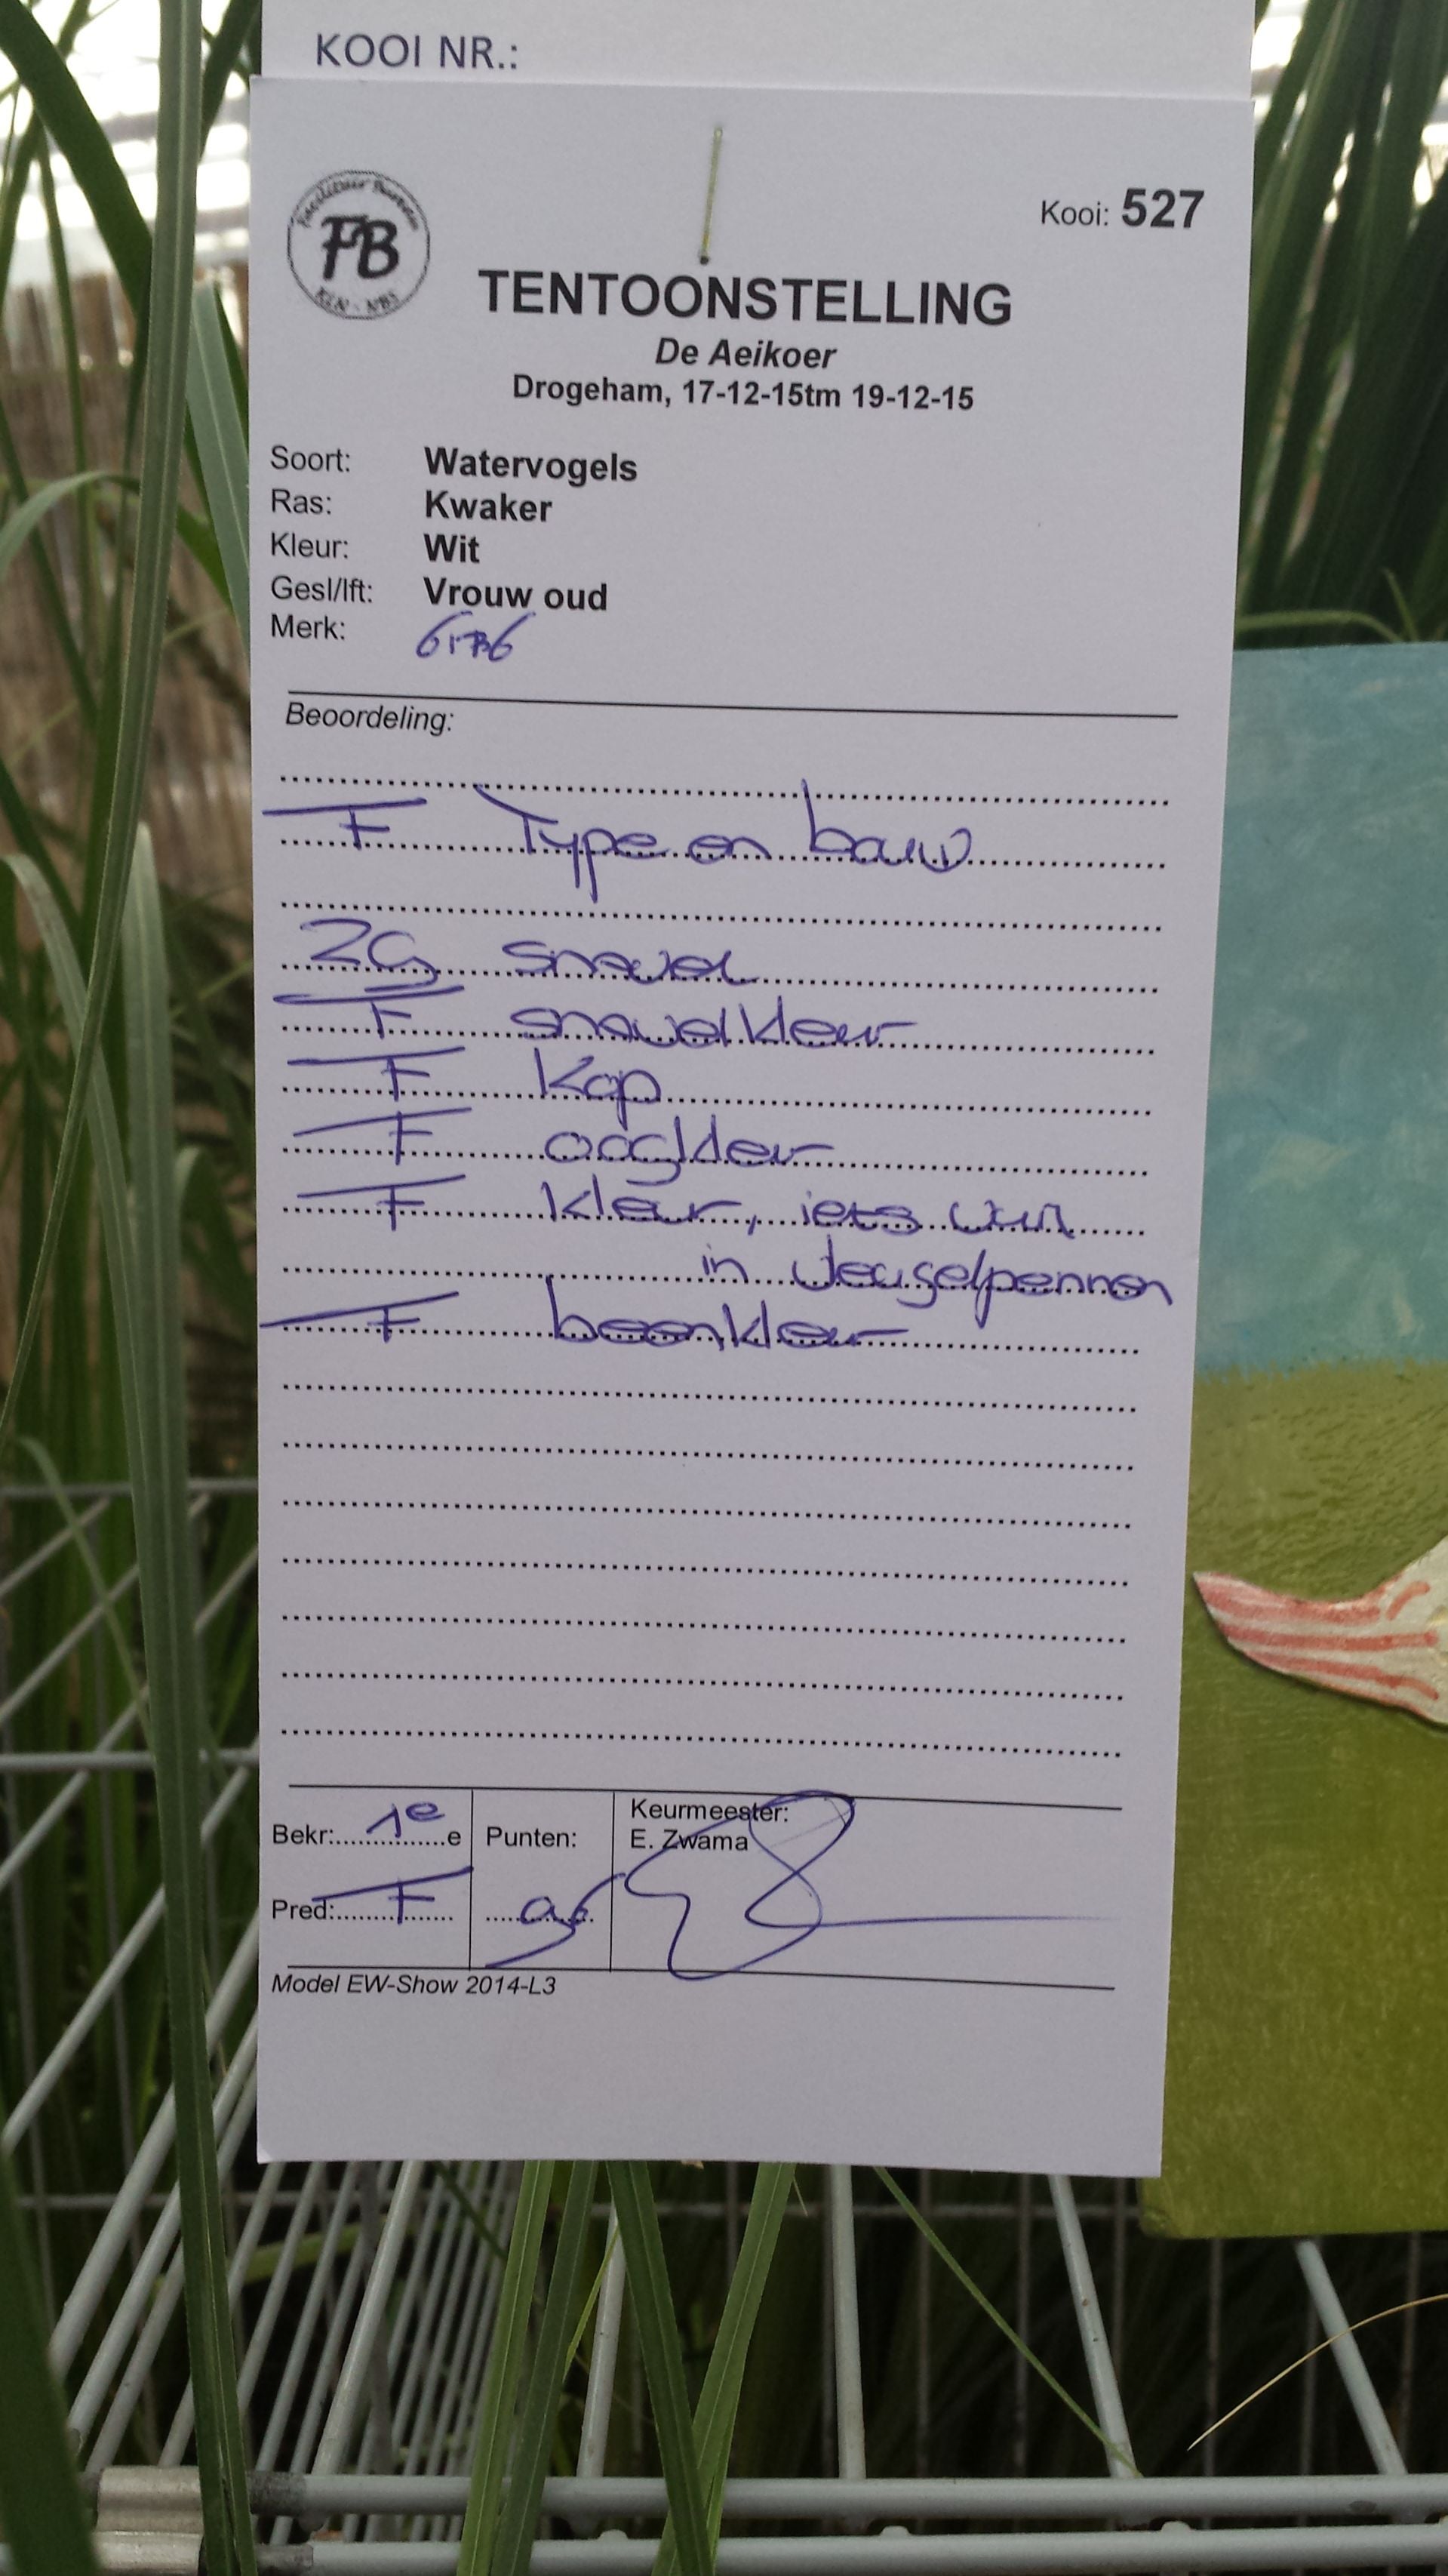 KOOI NR.:
Facilitair Bureau
FB
KLN - NBS
Kooi: 527
TENTOONSTELLING
De Aeikoer
Drogeham, 17-12-15tm 19-12-15
Soort: Watervogels
Ras: Kwaker
Kleur: Wit
Gesl/lft: Vrouw oud
Merk:
Beoordeling:
F Type en bouw
ZG snavel
F snavelkleur
F Kop
F oogkleur
F kleur, iets vuil
in vleugelpennen
F beenkleur
Bekr:...............e 1e
Punten:
Keurmeester:
E. Zwama
Pred: F
96
Model EW-Show 2014-L3